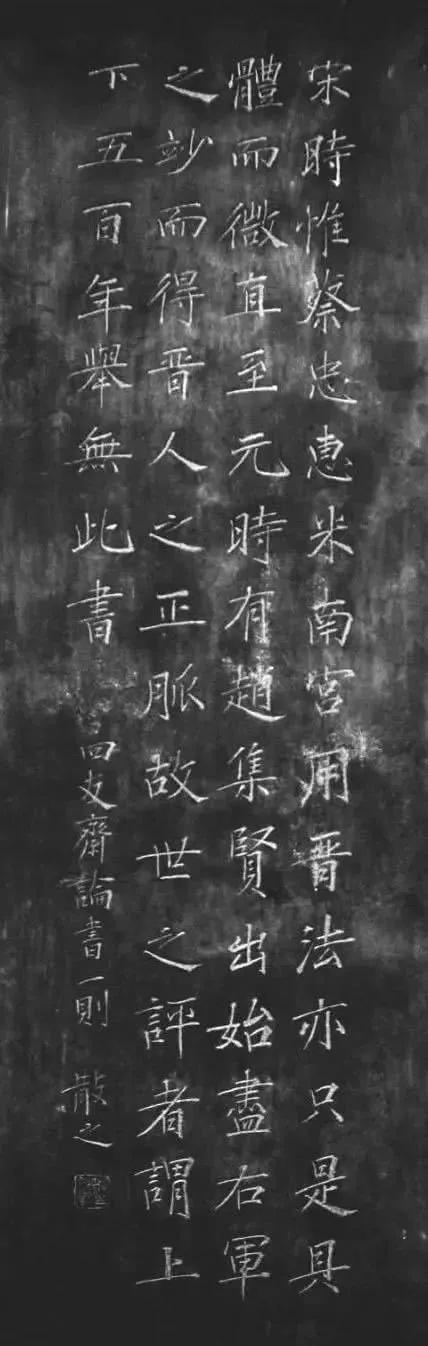 宋時惟蔡忠惠米南宮用晉法亦只是具
體而微直至元時有趙集賢出始盡右軍
之竗而得晋人之正脈故世之評者謂上
下五百年舉無此書
四友齋論書一則 散之